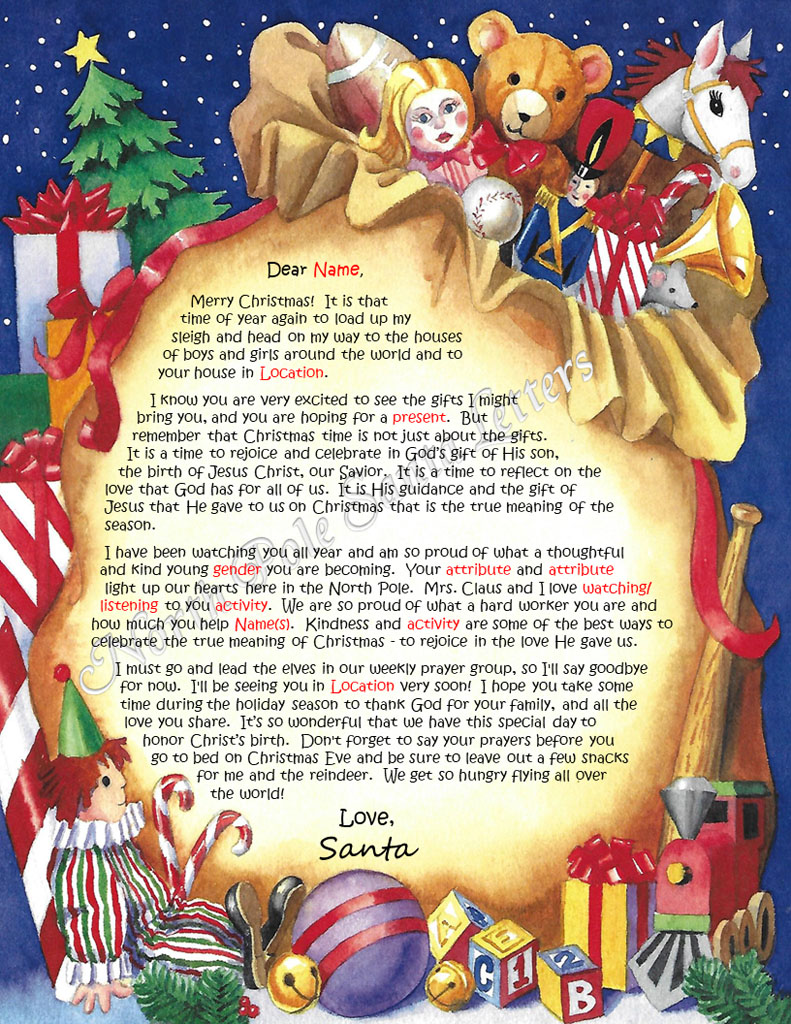 Dear Name,
Merry Christmas!  It is that
time of year again to load up my
sleigh and head on my way to the houses
of boys and girls around the world and to
your house in Location.
I know you are very excited to see the gifts I might
bring you, and you are hoping for a present.  But
remember that Christmas time is not just about the gifts.
It is a time to rejoice and celebrate in God's gift of His son,
the birth of Jesus Christ, our Savior.  It is a time to reflect on the
love that God has for all of us.  It is His guidance and the gift of
Jesus that He gave to us on Christmas that is the true meaning of the
season.
I have been watching you all year and am so proud of what a thoughtful
and kind young gender you are becoming.  Your attribute and attribute
light up our hearts here in the North Pole.  Mrs. Claus and I love watching/
listening to you activity.  We are so proud of what a hard worker you are and
how much you help Name(s).  Kindness and activity are some of the best ways to
celebrate the true meaning of Christmas - to rejoice in the love He gave us.
I must go and lead the elves in our weekly prayer group, so I'll say goodbye
for now.  I'll be seeing you in Location very soon!  I hope you take some
time during the holiday season to thank God for your family, and all the
love you share.  It's so wonderful that we have this special day to
honor Christ's birth.  Don't forget to say your prayers before you
go to bed on Christmas Eve and be sure to leave out a few snacks
for me and the reindeer.  We get so hungry flying all over
the world!
Love,
Santa
North Pole Santa Letters
A
C
1
2
B